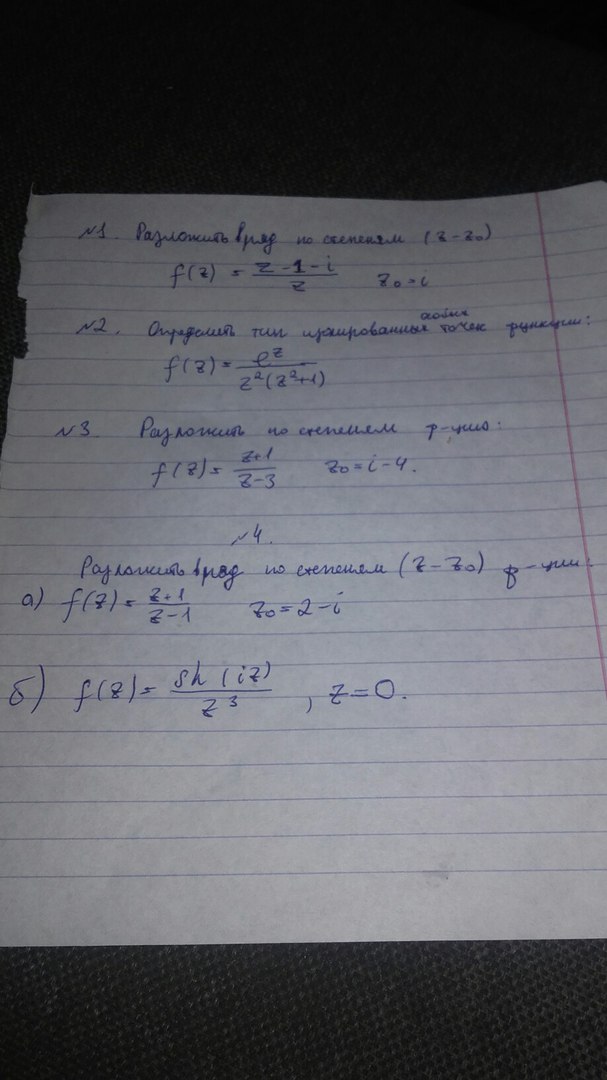 №1. Разложить в ряд по степеням (z-z₀)
f(z) = (z-1-i)/z   z₀=i
№2. Определить тип изолированных особых точек функции:
f(z) = e^z/(z²(z²+1))
№3 Разложить по степеням ф-цию:
f(z) = (z+1)/(z-3)   z₀=i-4.
№4.
Разложить в ряд по степеням (z-z₀) ф-ции:
а) f(z) = (z+1)/(z-1)   z₀=2-i
б) f(z) = sh(iz)/z³, z=0.